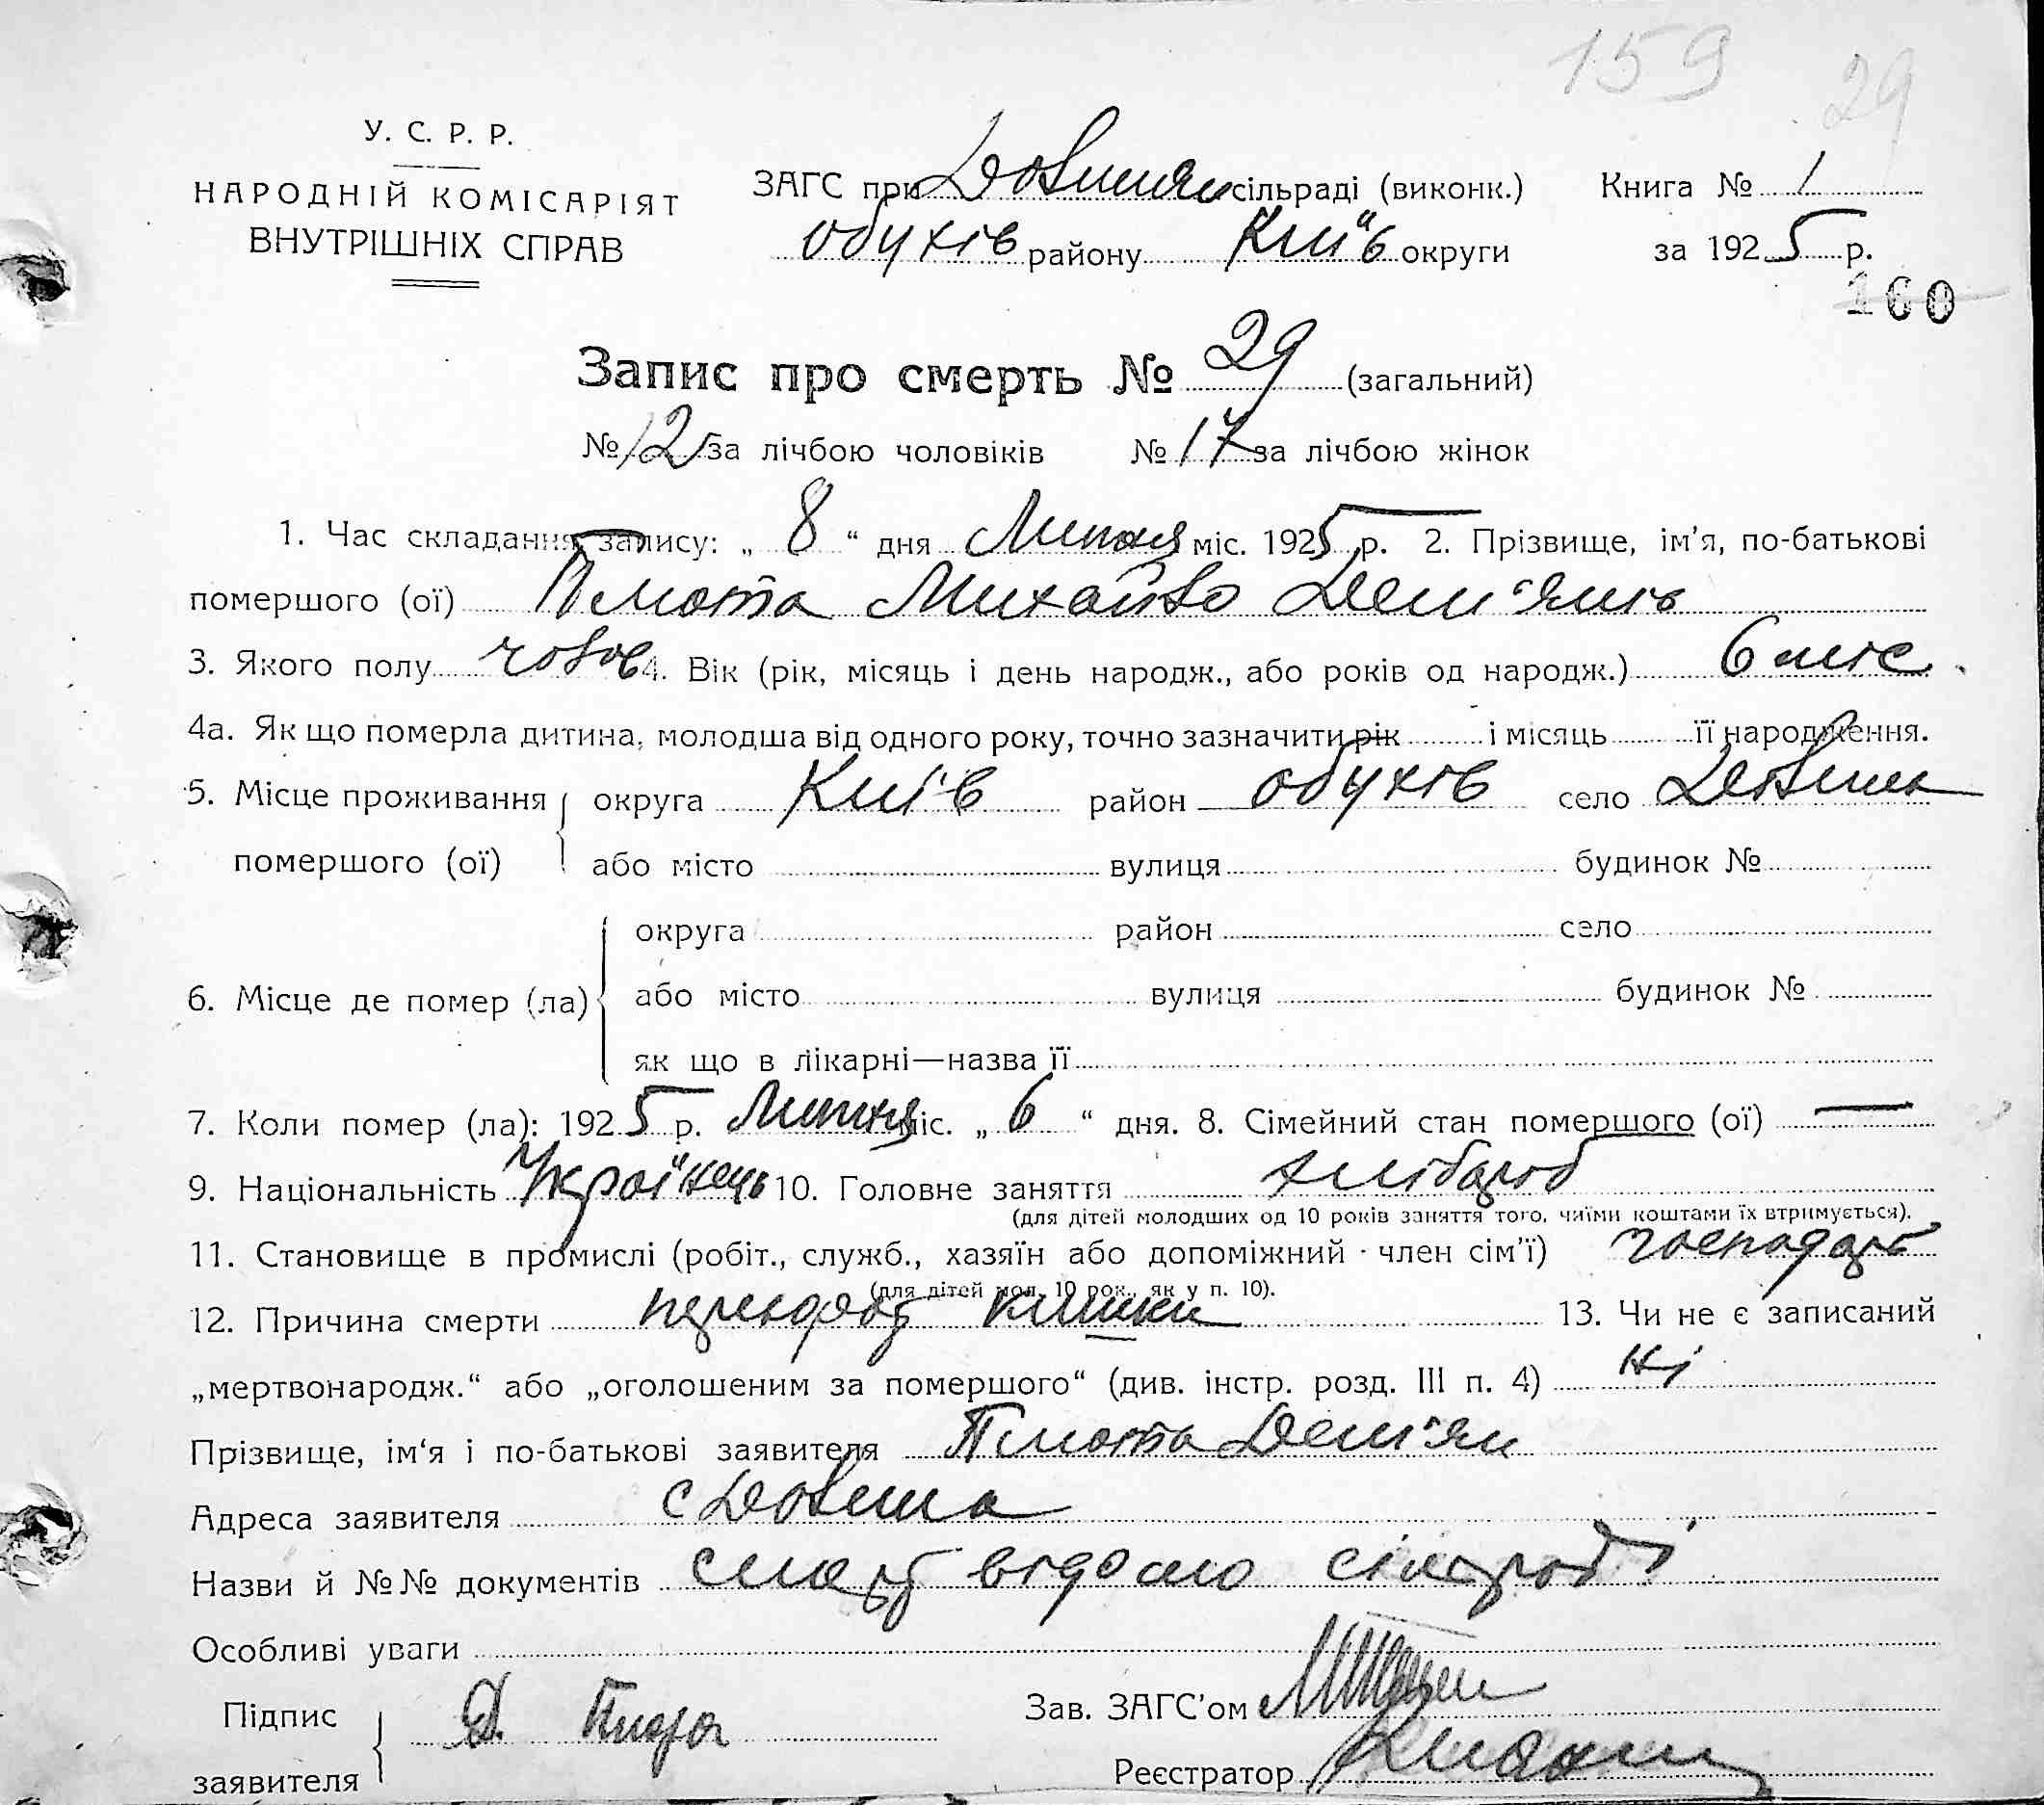 159
29
У. С. Р. Р.
НАРОДНІЙ КОМІСАРІЯТ
ВНУТРІШНІХ СПРАВ
ЗАГС при Долинян сільраді (виконк.)
Обухів району Київ округи
Книга № 1
за 1925 р.
160
Запис про смерть № 29 (загальний)
№ 12 за лічбою чоловіків № 17 за лічбою жінок
1. Час складання запису: „ 8 “ дня Липня міс. 1925 р. 2. Прізвище, ім'я, по-батькові
помершого (ої) Михайло Дем'янів
3. Якого полу чолов 4. Вік (рік, місяць і день народж., або років од народж.) 6 міс.
4а. Як що померла дитина, молодша від одного року, точно зазначити рік і місяць її народження.
5. Місце проживання округа Київ район Обухів село Долина
помершого (ої) або місто вулиця будинок №
округа район село
6. Місце де помер (ла) або місто вулиця будинок №
як що в лікарні—назва її
7. Коли помер (ла): 1925 р. Липня міс. „ 6 “ дня. 8. Сімейний стан помершого (ої) —
9. Національність Українець 10. Головне заняття хлібороб
(для дітей молодших од 10 років заняття того, чиїми коштами їх втримується).
11. Становище в промислі (робіт., служб., хазяїн або допоміжний член сім'ї) господарь
(для дітей мол. 10 рок., як у п. 10).
12. Причина смерти кишки 13. Чи не є записаний
„мертвонародж.“ або „оголошеним за помершого“ (див. інстр. розд. III п. 4) ні
Прізвище, ім'я і по-батькові заявителя Дем'ян
Адреса заявителя с Долина
Назви й №№ документів смерть відомо сільраді
Особливі уваги
Підпис
заявителя Д.
Зав. ЗАГС'ом
Реєстратор